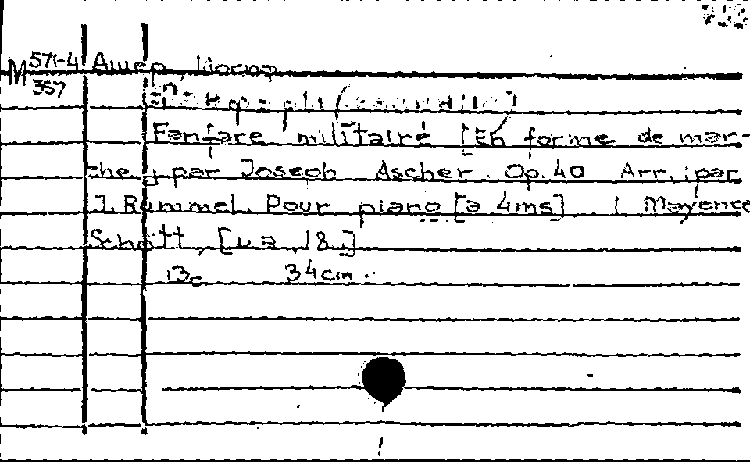 M 571-4
357
Ашер, Иосиф
Fanfare militaire [En forme de mar-
che] par Joseph Ascher. Op. 40 Arr. par
J. Rummel. Pour piano [à 4 ms]. Mayence
Schott, [18
13c 34cm.